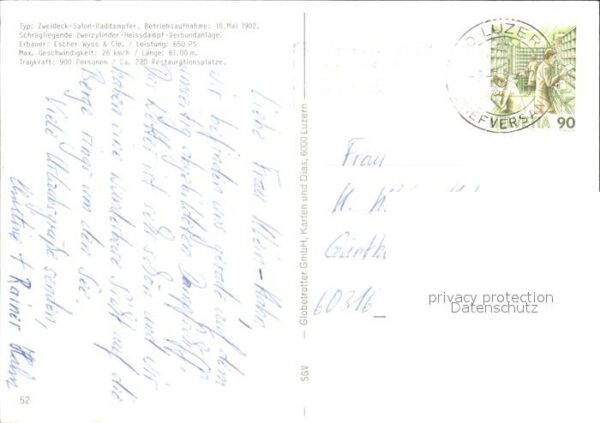 Typ: Zweideck-Salon-Raddampfer. Betriebsaufnahme: 18.Mai 1902.
Schrägliegende Zweizylinder-Heissdampf-Verbundanlage.
Erbauer: Escher Wyss & Cie. / Leistung: 650 PS
Max. Geschwindigkeit: 26 km/h / Länge: 63.00 m.
Tragkraft: 900 Personen / Ca. 220 Restaurationsplätze.
Liebe Frau
wir befinden uns gerade auf dem
umseitig abgebildeten Dampfschiff.
ist sehr schön und wir
haben eine wunderbare Sicht auf die
Berge rings um den See.
Viele Urlaubsgrüße senden
Christine + Rainer
52
SGV — Globetrotter GmbH, Karten und Dias, 6000 Luzern
LUZERN
BRIEFVERSA
90
Frau
Günth
60316
privacy protection
Datenschutz